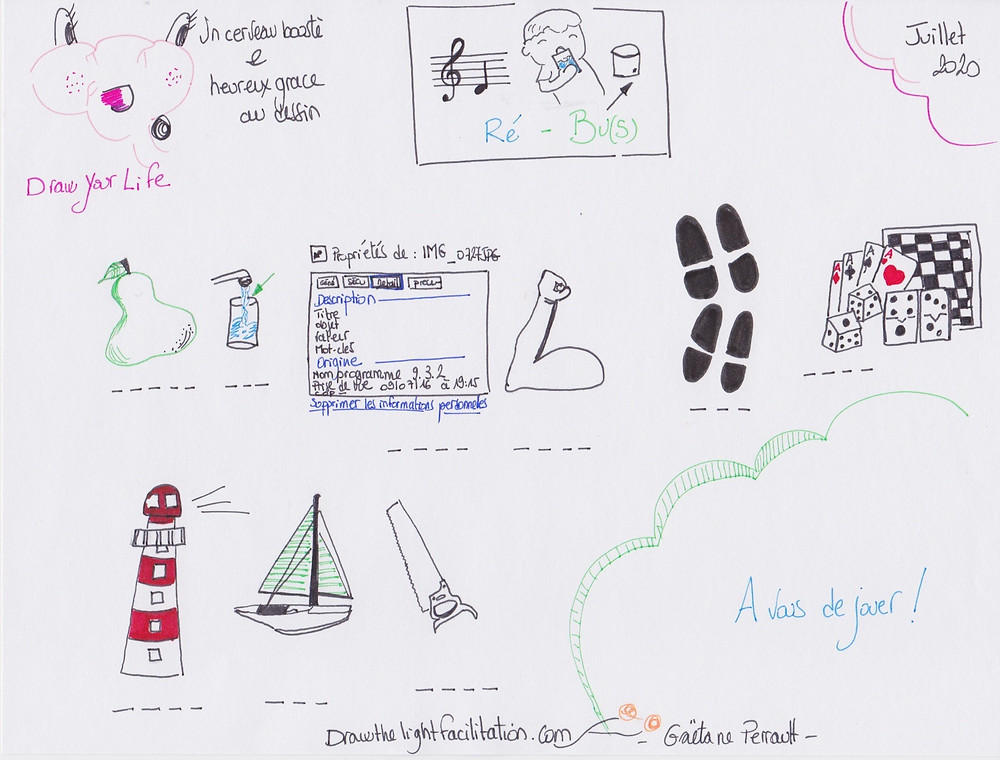 Un cerveau boosté
e
heureux grace
au dessin
Draw Your Life
Ré - Bu(s)
Juillet
2020
Propriétés de : IMG_0727JPG
Géné Sécu Détail
Description
Titre
objet
Mot-clés
Origine
Nom programme 9.3.2
Prise de vue 09/07/16 à 19:15
Supprimer les informations personnelles
A A A A
A vous de jouer !
Drawthelightfacilitation.com - Gaëtane Perrault -